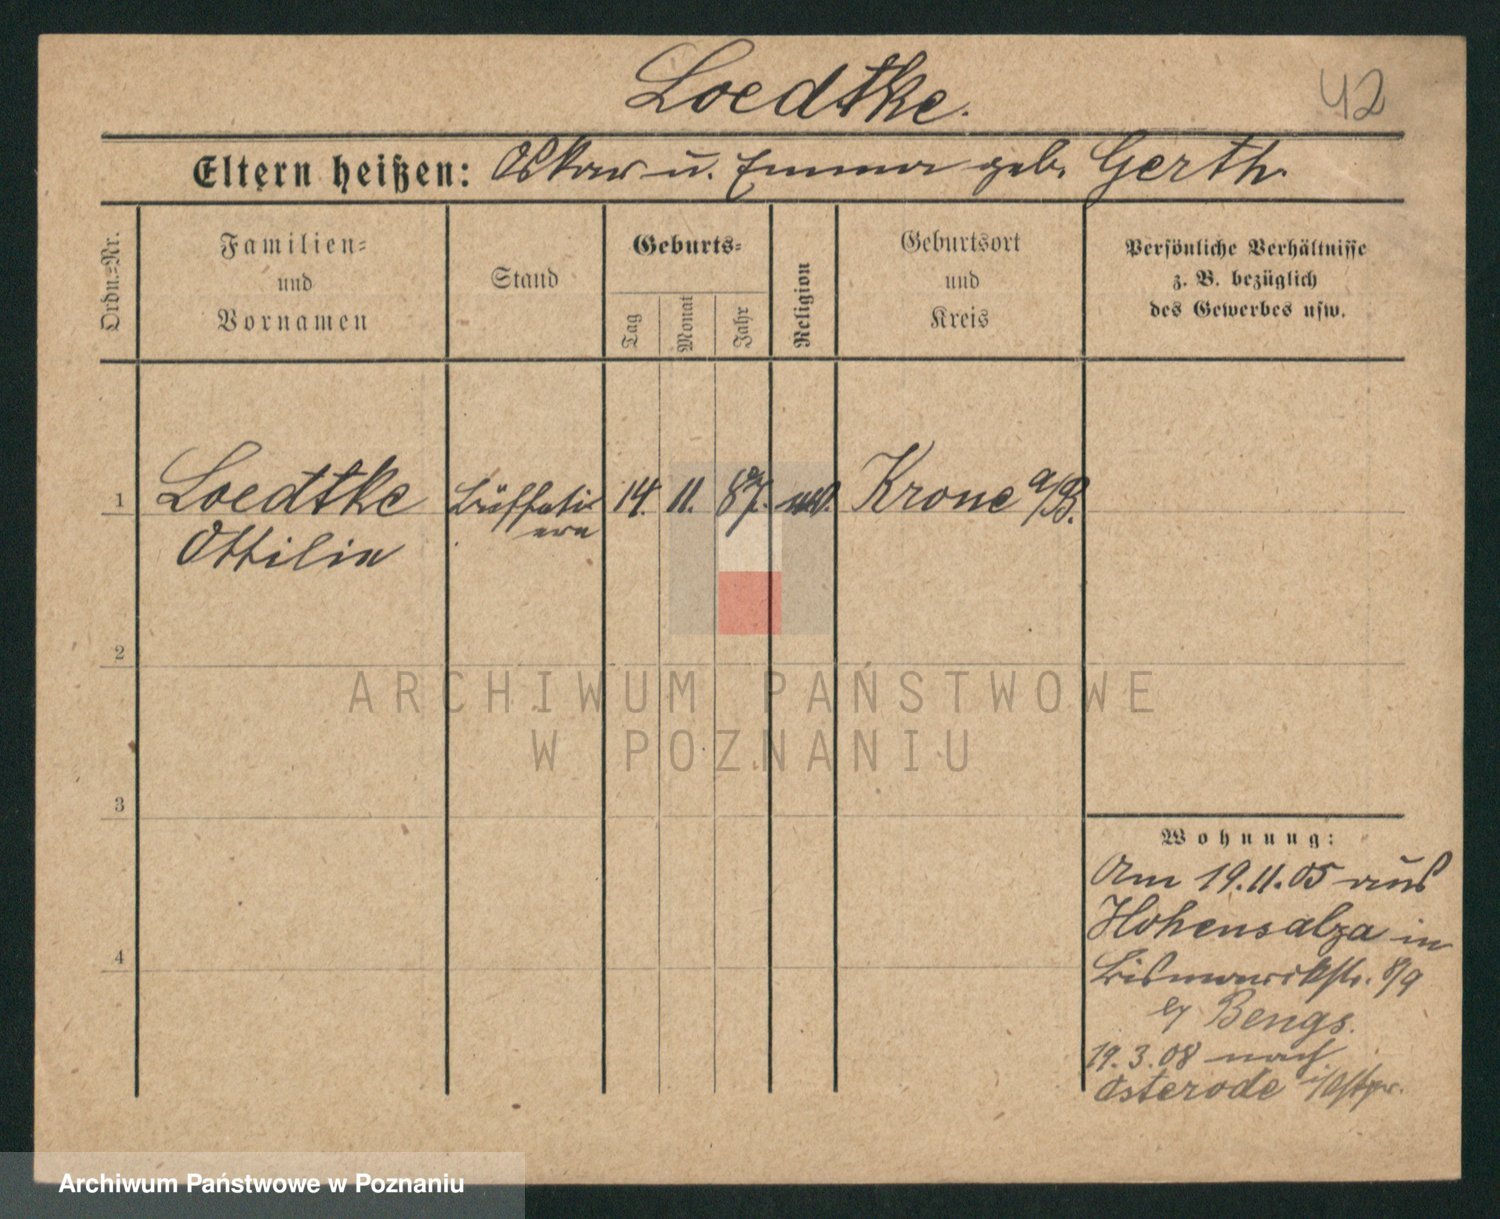 Loedtke.
42
Eltern heißen: Oskar u. Emma geb. Gerth.
Ordn.=Nr.
Familien=
und
Vornamen
Stand
Geburts=
Tag
Monat
Jahr
Religion
Geburtsort
und
Kreis
Persönliche Verhältnisse
z. B. bezüglich
des Gewerbes usw.
1 Loedtke Büffeti= 14. 11. 87. ev. Krone a/B.
Ottilie ere
2
3
4
ARCHIWUM PAŃSTWOWE
W POZNANIU
Wohnung:
Am 19.11.05 aus
Hohensalza in
Bismarckstr. 8/9
Bengs.
19.3.08 nach
Osterode i/Ostpr.
Archiwum Państwowe w Poznaniu